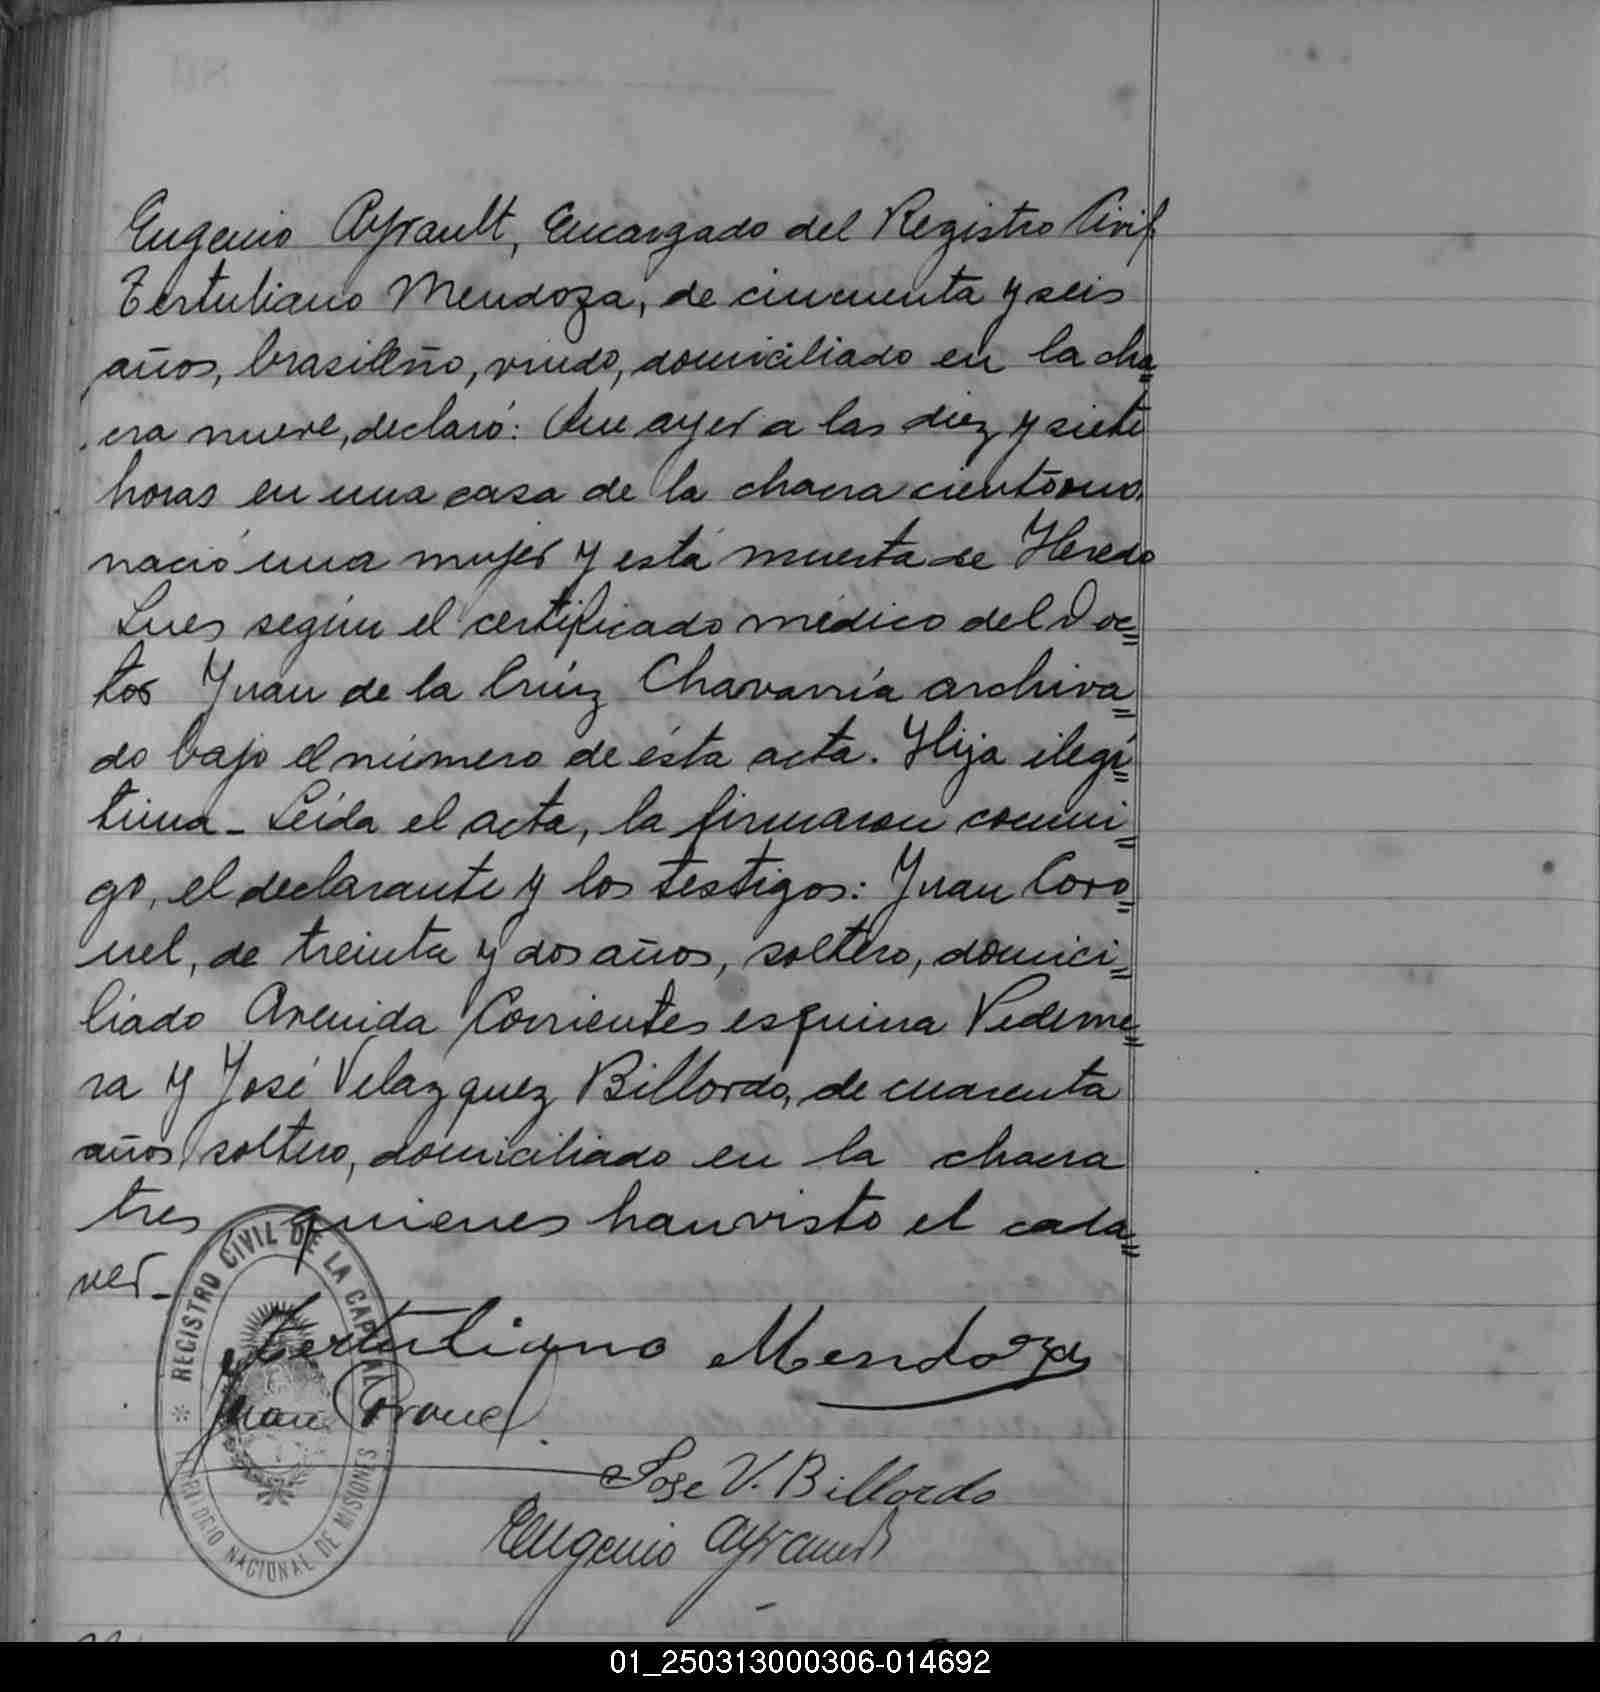 Eugenio Ayrault, Encargado del Registro Civil.
Tertuliano Mendoza, de cincuenta y seis
años, brasileño, viudo, domiciliado en la cha=
cra nueve, declaró: Que ayer a las diez y siete
horas en una casa de la chacra ciento uno,
nació una mujer y está muerta de Heredo
Lues según el certificado médico del Doc=
tor Juan de la Crúz Chavarría archiva=
do bajo el número de ésta acta. Hija ilegí=
tima - Leída el acta, la firmaron conmi=
go, el declarante y los testigos: Juan Coro=
nel, de treinta y dos años, soltero, domici=
liado Avenida Corrientes esquina Pederne=
ra y José Velazquez Billordo, de cuarenta
años, soltero, domiciliado en la chacra
tres quienes han visto el cada=
ver -
REGISTRO CIVIL DE LA CAPITAL
TERRITORIO NACIONAL DE MISIONES
Tertuliano Mendoza
Juan Coronel
Jose V. Billordo
Eugenio Ayrault
01_250313000306-014692